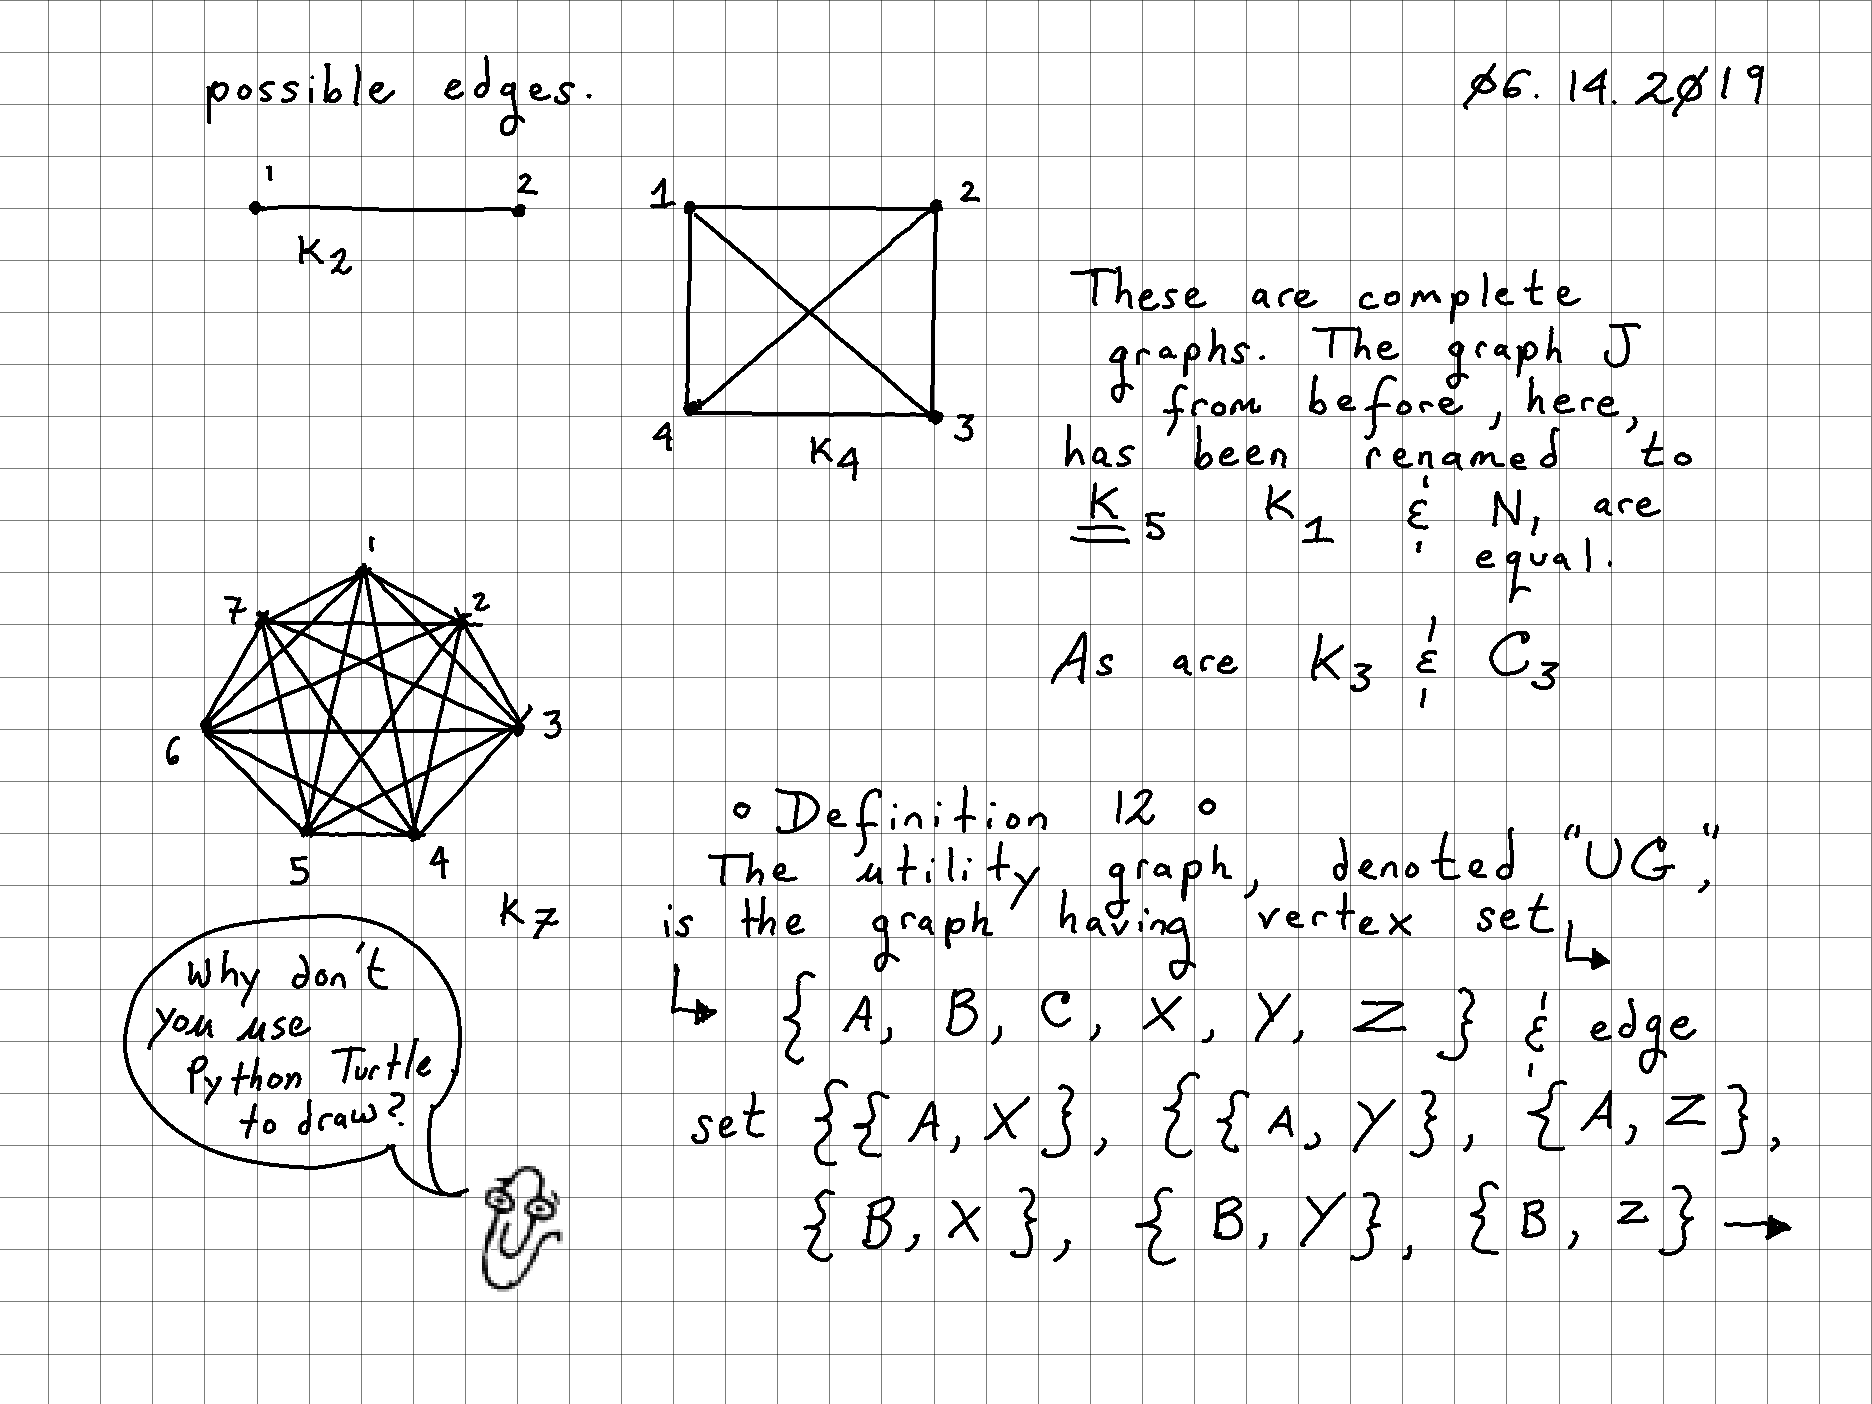 possible edges.
Ø6. 14. 2Ø19
1 2
K2
1 2
4 3
K4
These are complete
graphs. The graph J
from before, here,
has been renamed to
K5 K1 & N1 are
equal.
As are K3 & C3
1
7 2
6 3
5 4
K7
Why don't
you use
Python Turtle
to draw?
° Definition 12 °
The utility graph, denoted "UG,"
is the graph having vertex set
{ A, B, C, X, Y, Z } & edge
set {{ A, X }, {{ A, Y }, { A, Z },
{ B, X }, { B, Y }, { B, Z } →